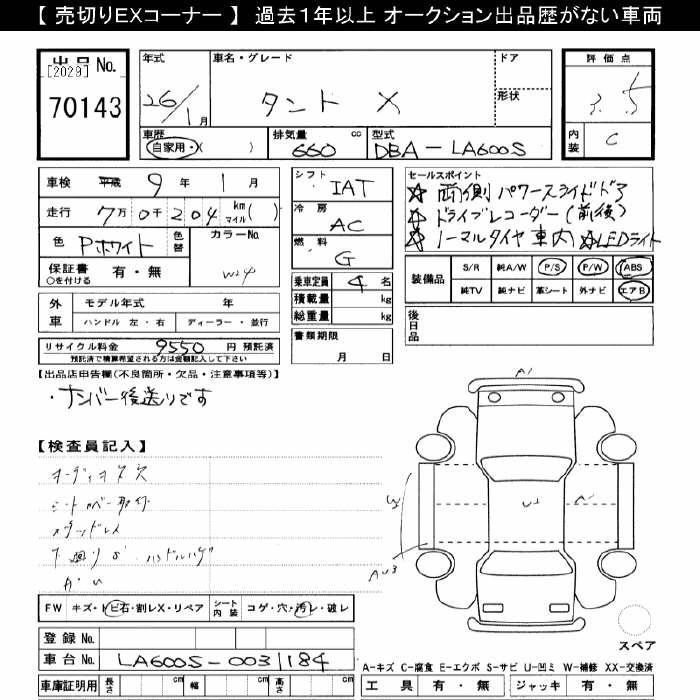 【 売切りEXコーナー 】 過去1年以上 オークション出品歴がない車両
出品 No.
[2029]
70143
年式
26/1月
車名・グレード
タント X
ドア
形状
評価点
3.5
内装
C
車歴
自家用・( )
排気量 cc
660
型式
DBA-LA600S
車検 平成 9年 1月
走行 7万0千204 km マイル( )
色 Pホワイト
色替
カラーNo.
W24
保証書 有・無
○を付ける
外車
モデル年式 年
ハンドル 左・右
ディーラー・並行
リサイクル料金 9550 円 預託済
預託済で積算希望される方は金額記入して下さい
シフト
IAT
冷房
AC
燃料
G
乗車定員 4 名
積載量 kg
総重量 kg
書類期限
月 日
セールスポイント
☆両側パワースライドドア
☆ドライブレコーダー(前後)
☆ノーマルタイヤ車内 ☆LEDライト
装備品
S/R 純A/W P/S P/W ABS
純TV 純ナビ 革シート 外ナビ エアB
後日品
【出品店申告欄(不良箇所・欠品・注意事項等)】
・ナンバー後送りです
【検査員記入】
オーディオレス
シートカバー取付
メッキドレス
FW キズ・トビ石・割レX・リペア
シート内装 コゲ・穴・汚レ・破レ
登録 No.
車台 No. LA600S-0031184
車庫証明用 長さ cm 幅 cm 高さ cm
A1
スペア
A-キズ C-腐食 E-エクボ S-サビ U-凹ミ W-補修 XX-交換済
工具 有・無 ジャッキ 有・無